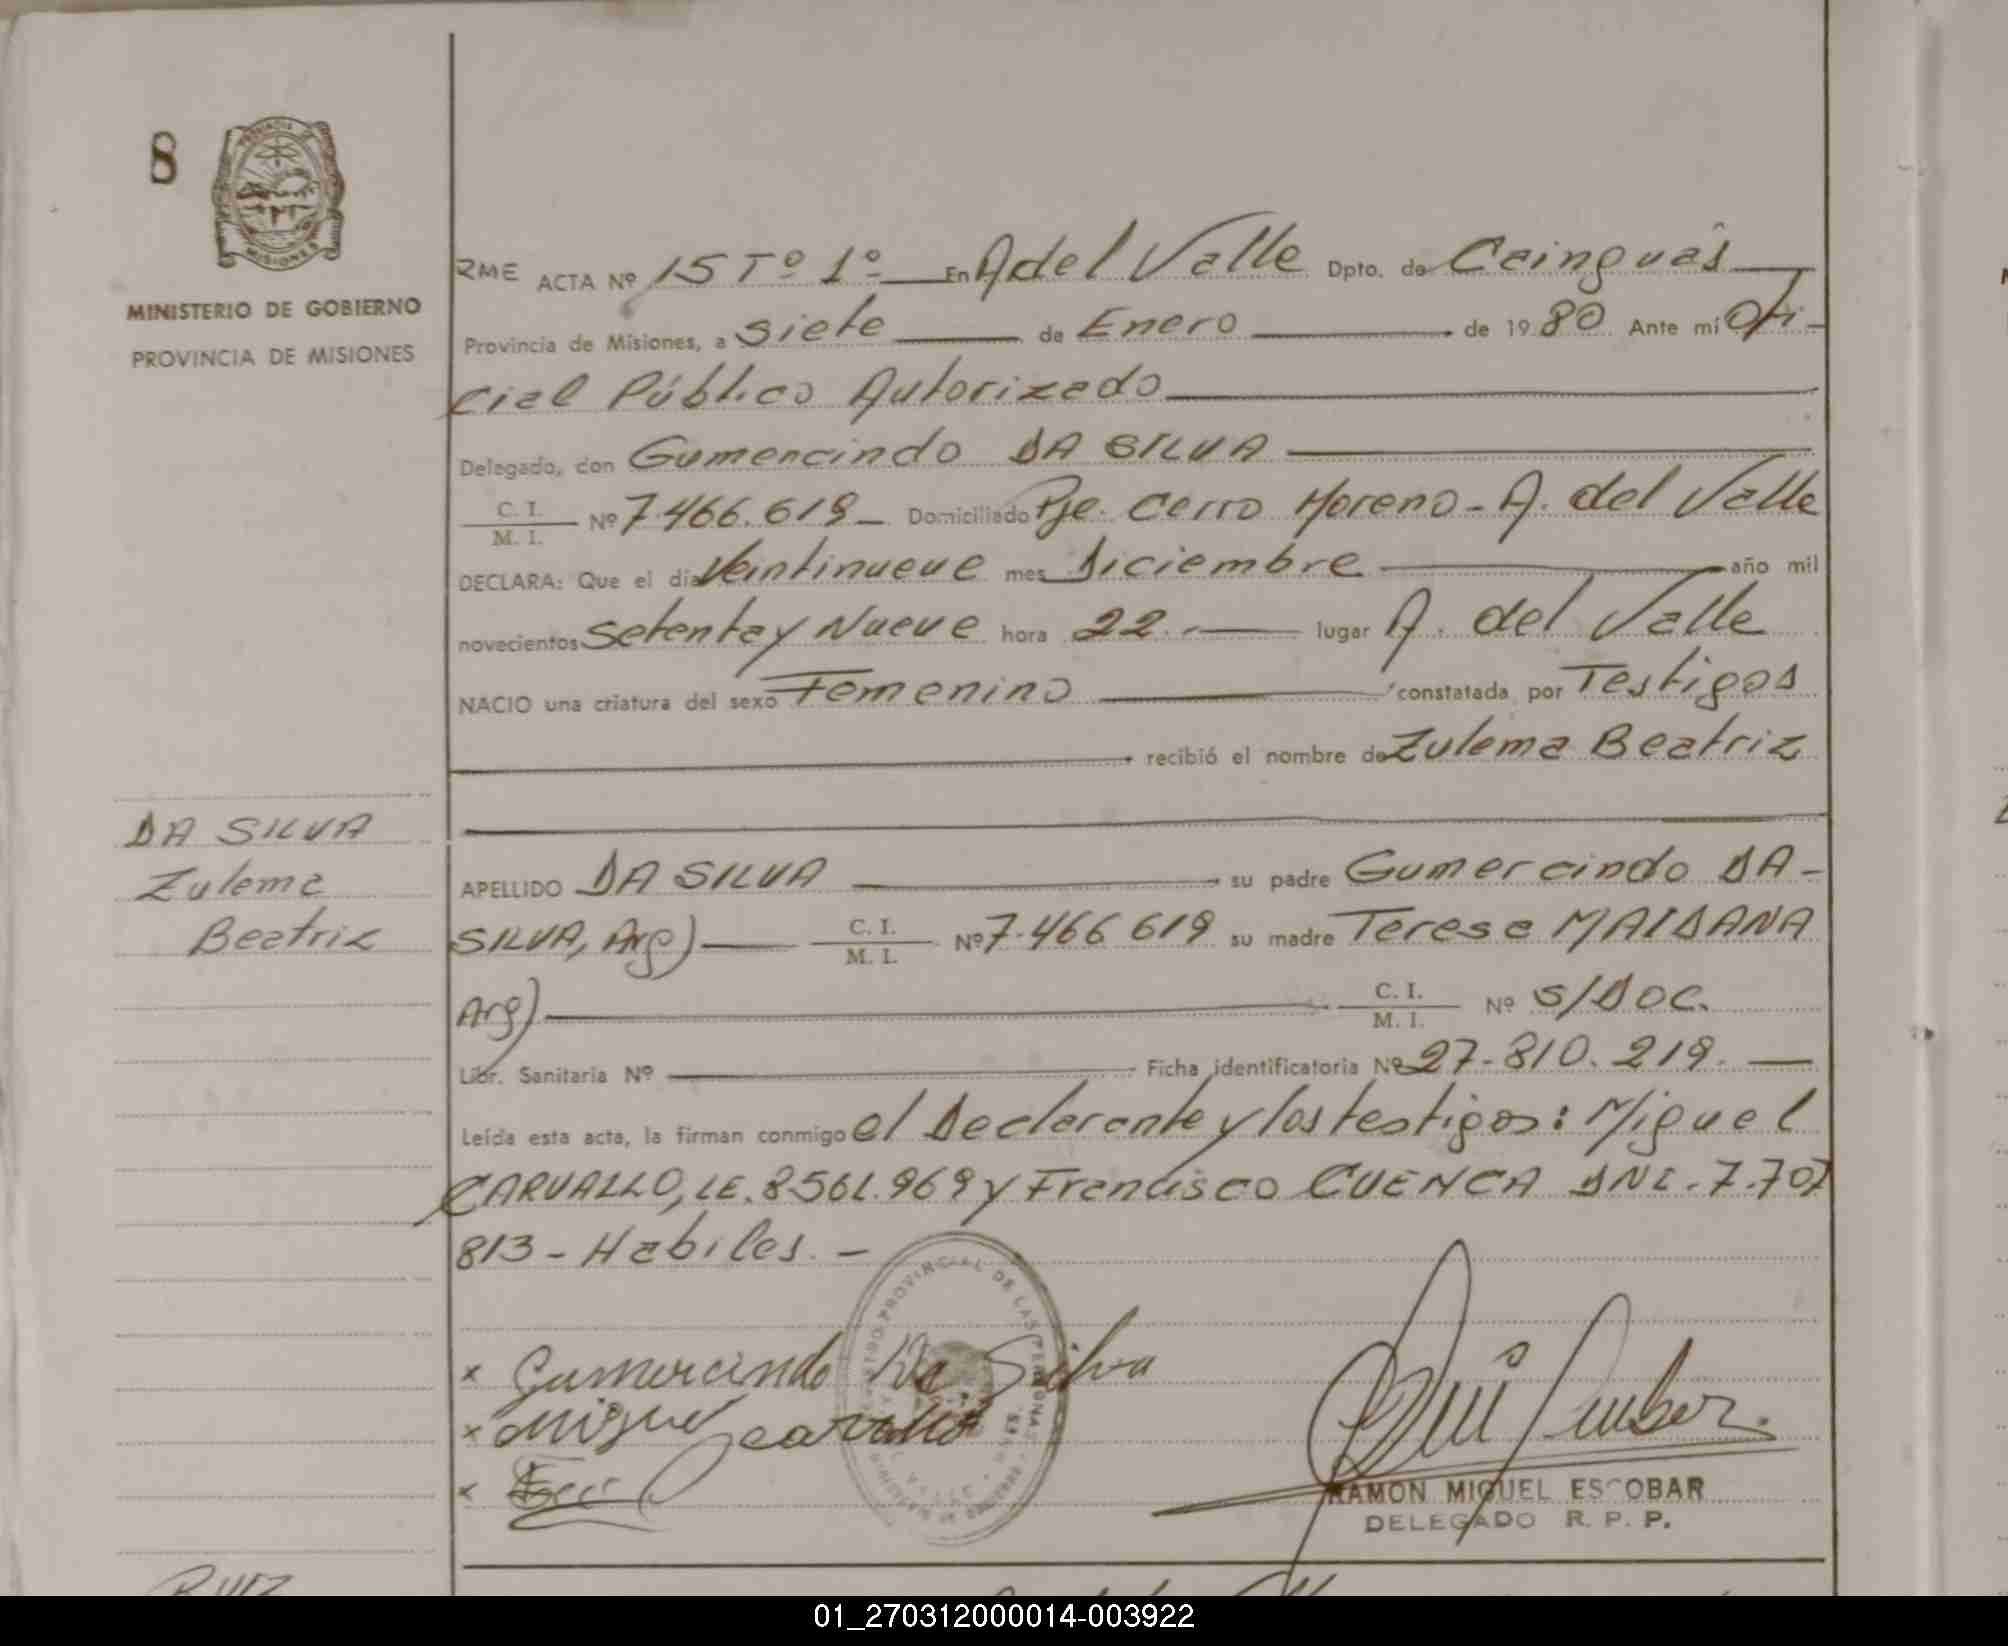 8
PROVINCIA DE
MISIONES
MINISTERIO DE GOBIERNO
PROVINCIA DE MISIONES
RME ACTA Nº 15 Tº 1º En A del Valle Dpto. de Cainguás
Provincia de Misiones, a siete de Enero de 1980 Ante mí Ofi-
cial Público Autorizado
Delegado, don Gumercindo DA SILVA
C. I.
M. I. Nº 7.466.619 - Domiciliado Pje. Cerro Moreno - A. del Valle
DECLARA: Que el día Veintinueve mes Diciembre año mil
novecientos Setenta y Nueve hora 22.- lugar A. del Valle
NACIO una criatura del sexo Femenino constatada por Testigos
recibió el nombre de Zulema Beatriz
DA SILVA
Zulema
Beatriz
APELLIDO DA SILVA su padre Gumercindo DA-
SILVA, Arg) C. I. M. I. Nº 7.466 619 su madre Teresa MAIDANA
Arg) C. I. M. I. Nº S/DOC.
Libr. Sanitaria Nº Ficha identificatoria Nº 27-810.219.
Leída esta acta, la firman conmigo el Declarante y los testigos: Miguel
CARVALLO, LE. 8561.969 y Francisco CUENCA DNI. 7.707
813 - Habiles. -
REGISTRO PROVINCIAL DE LAS PERSONAS
x Gumercindo Da Silva
x Miguel Carvallo
x
RAMON MIGUEL ESCOBAR
DELEGADO R. P. P.
01_270312000014-003922